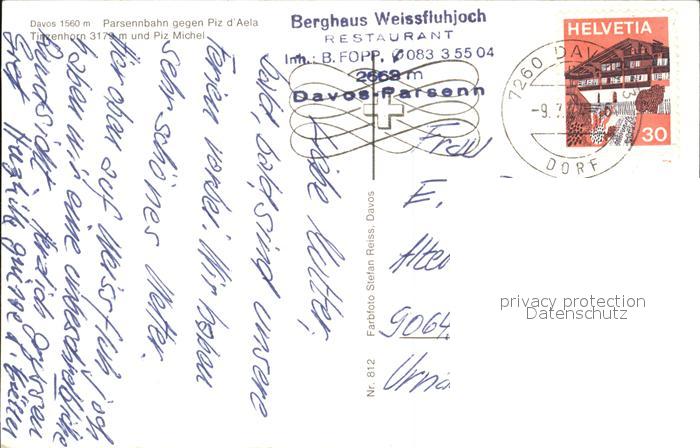 Davos 1560 m Parsennbahn gegen Piz d'Aela
Tinzenhorn 3179 m und Piz Michel
Berghaus Weissfluhjoch
RESTAURANT
Inh.: B. FOPP, 083 3 55 04
2663 m
Davos-Parsenn
HELVETIA
30
7260 DAV
-9.7
DORF
Liebe Mutter,
bald, bald sind unsere
Ferien vorbei. Wir haben
sehr schönes Wetter.
Hier oben auf Weissfluhjoch
haben wir eine unbeschreibliche
Rundsicht. Herzlich grüssen
Frau
E.
Alte
9064
Urnä
Nr. 812 Farbfoto Stefan Reiss, Davos
privacy protection
Datenschutz